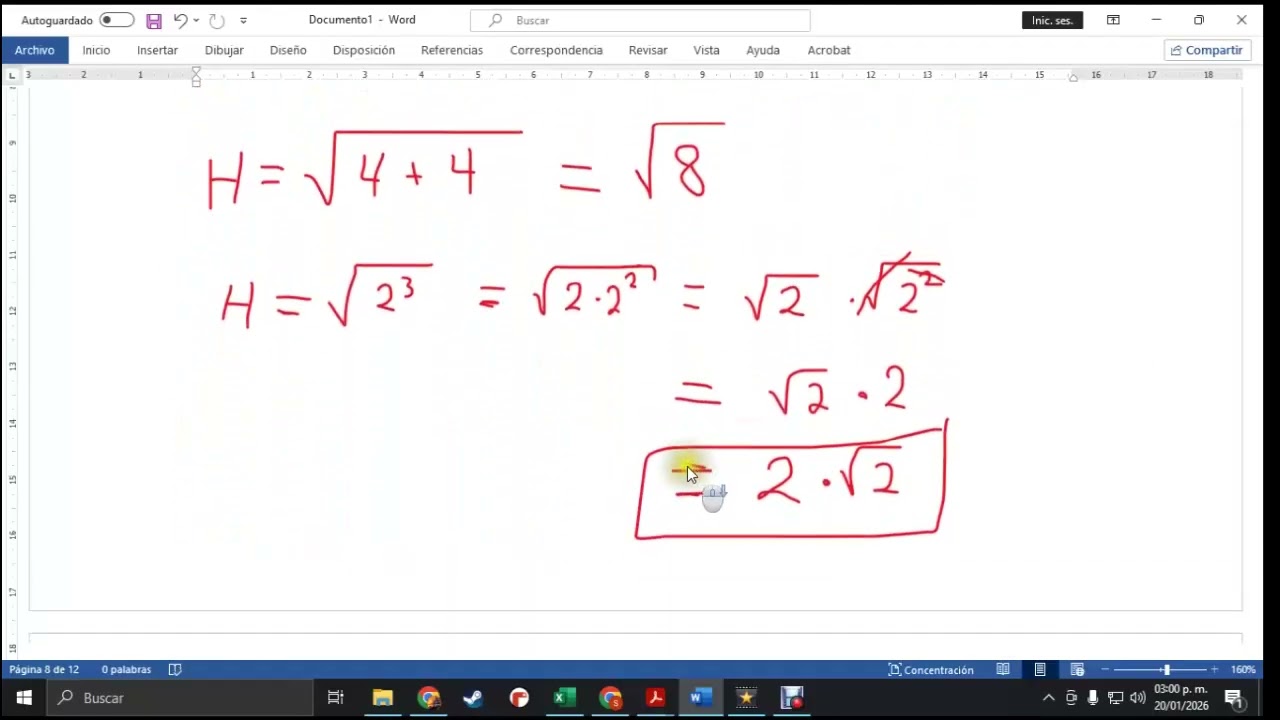 Autoguardado Documento1 - Word Buscar Inic. ses.
Archivo Inicio Insertar Dibujar Diseño Disposición Referencias Correspondencia Revisar Vista Ayuda Acrobat Compartir
3 2 1 1 2 3 4 5 6 7 8 9 10 11 12 13 14 15 16 17 18
9
10
11
12
13
14
15
16
17
18
H = √(4 + 4) = √8
H = √(2³) = √(2 · 2²) = √2 · √(2²)
= √2 · 2
= 2 · √2
Página 8 de 12 0 palabras Concentración 160%
Buscar 03:00 p. m.
20/01/2026 1